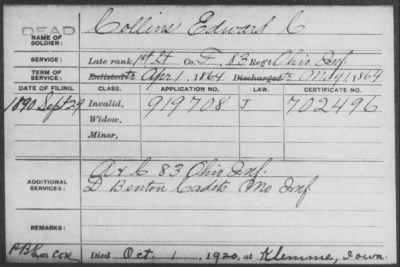 DEAD
NAME OF SOLDIER: Collins Edward C
SERVICE: Late rank 1st Lt Co. F, 83 Reg't Ohio Inf.
TERM OF SERVICE: Enlisted to Apr 1, 1864 Discharged to May 1, 1864
DATE OF FILING. CLASS. APPLICATION NO. LAW. CERTIFICATE NO.
1890 Sept 29 Invalid, 919708 J 702496
Widow,
Minor,
ADDITIONAL SERVICES: A & C 83 Ohio Inf.
D Benton Cadets Mo Inf
REMARKS:
Died Oct. 1, 1920, at Klemme, Iowa.